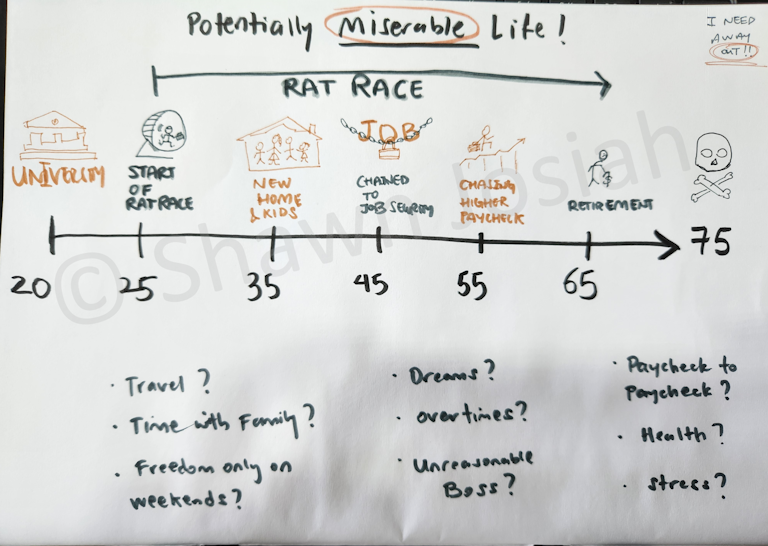 Potentially Miserable Life!
I NEED
AWAY
OUT!!
RAT RACE
UNIVERSITY
START
OF
RATRACE
NEW
HOME
& KIDS
JOB
CHAINED
TO
JOB SECURITY
CHASING
HIGHER
PAYCHECK
RETIREMENT
20
25
35
45
55
65
75
© Shawn Josiah
· Travel?
· Time with Family?
· Freedom only on
weekends?
· Dreams?
· overtimes?
· Unreasonable
Boss?
· Paycheck to
Paycheck?
· Health?
· stress?